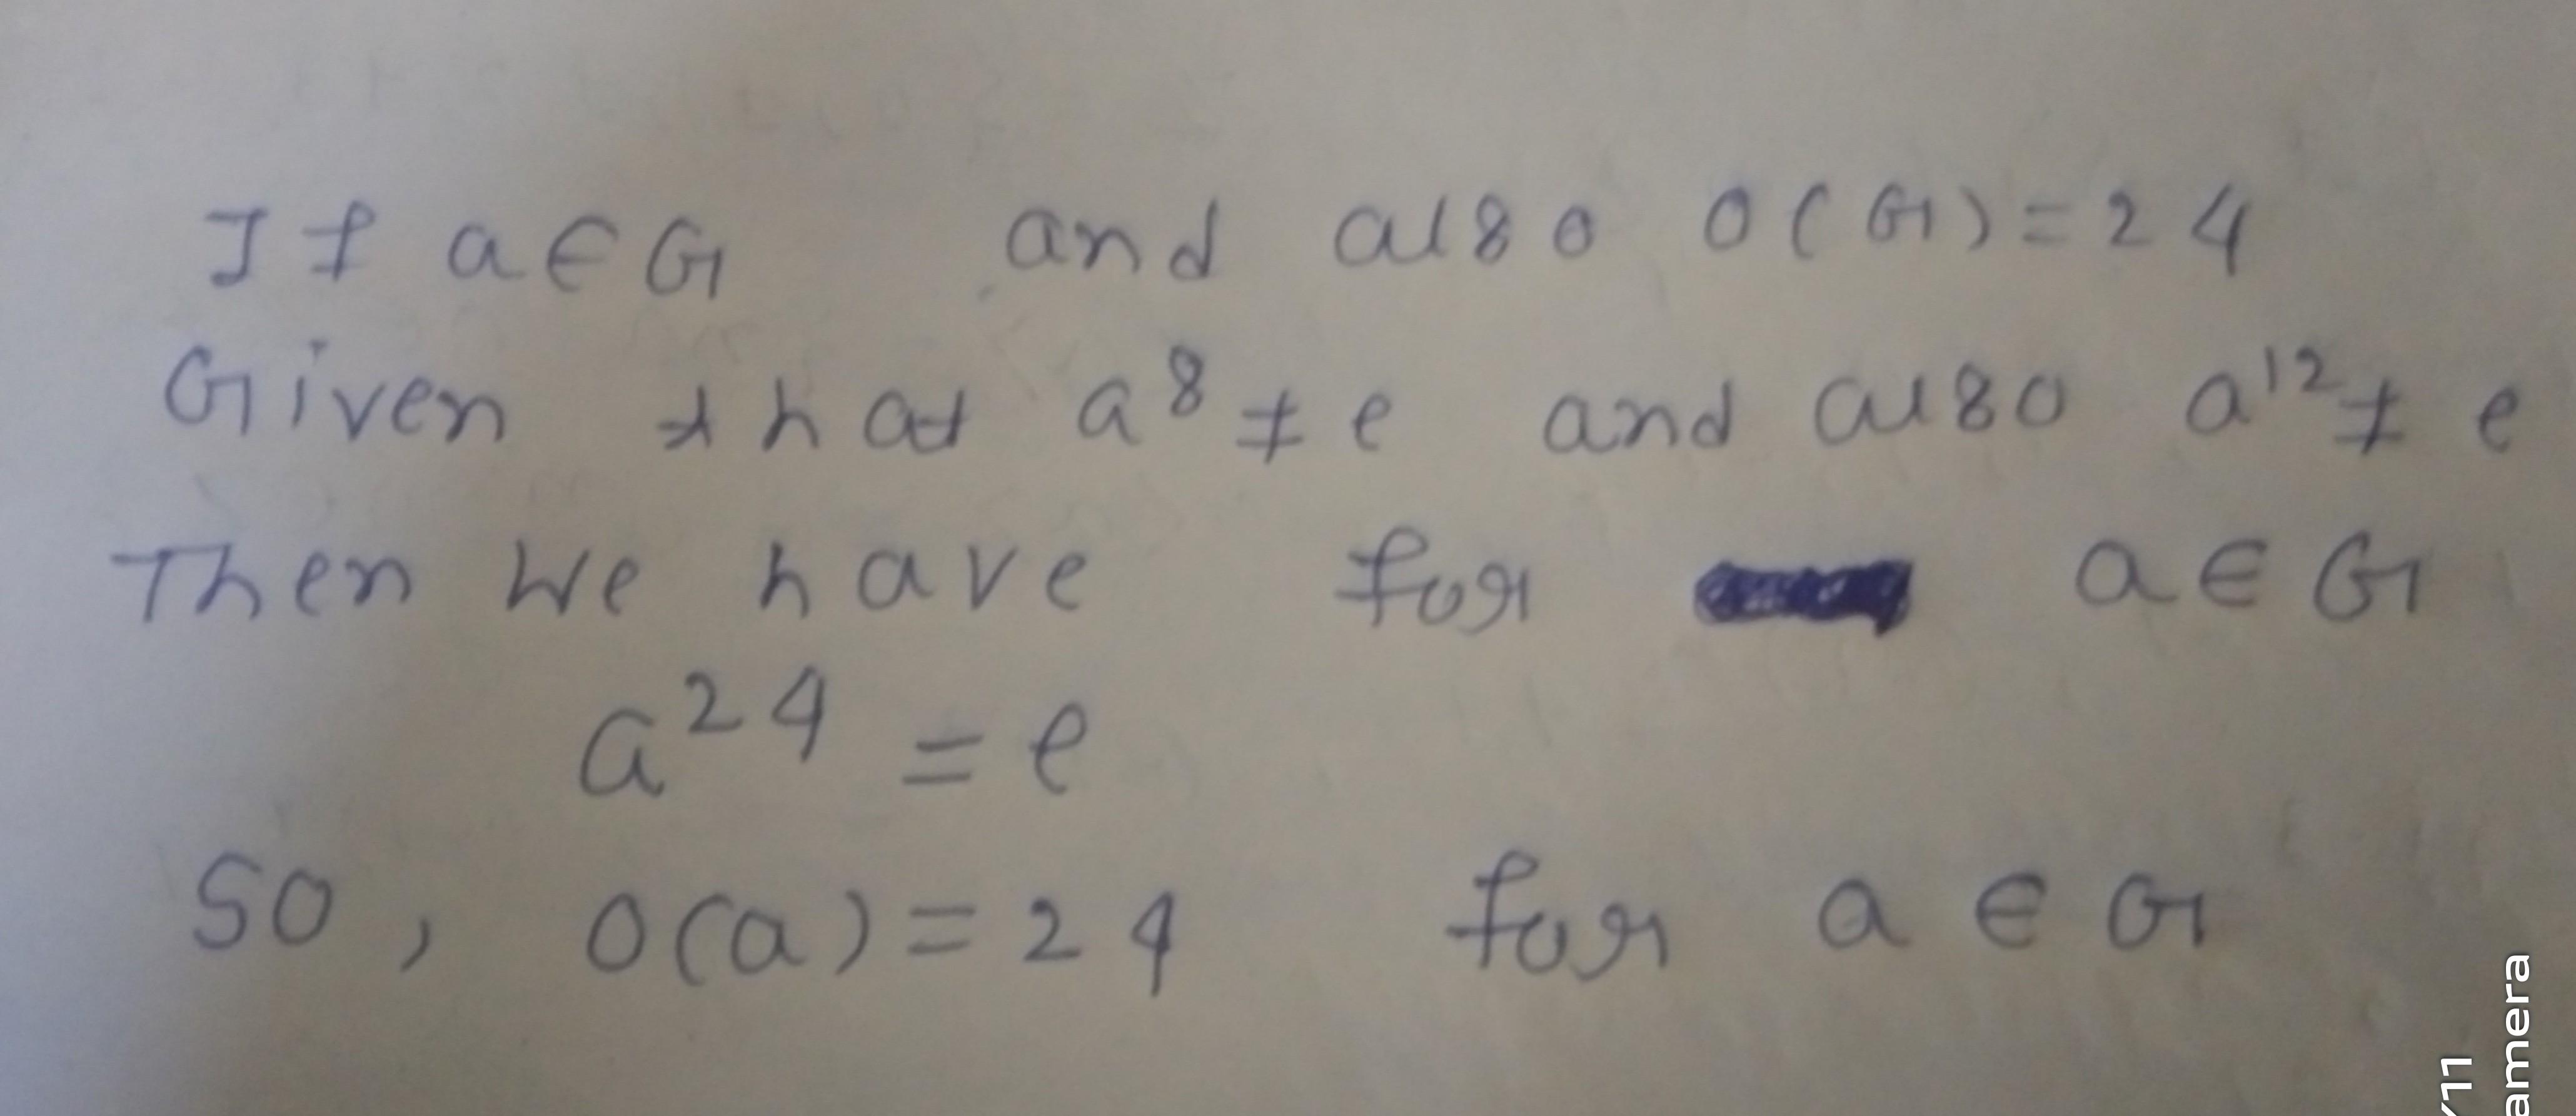 If a ∈ G and also O(G) = 24
Given that a⁸ ≠ e and also a¹² ≠ e
Then we have for a ∈ G
a²⁴ = e
SO, O(a) = 24 for a ∈ G
/11
amera